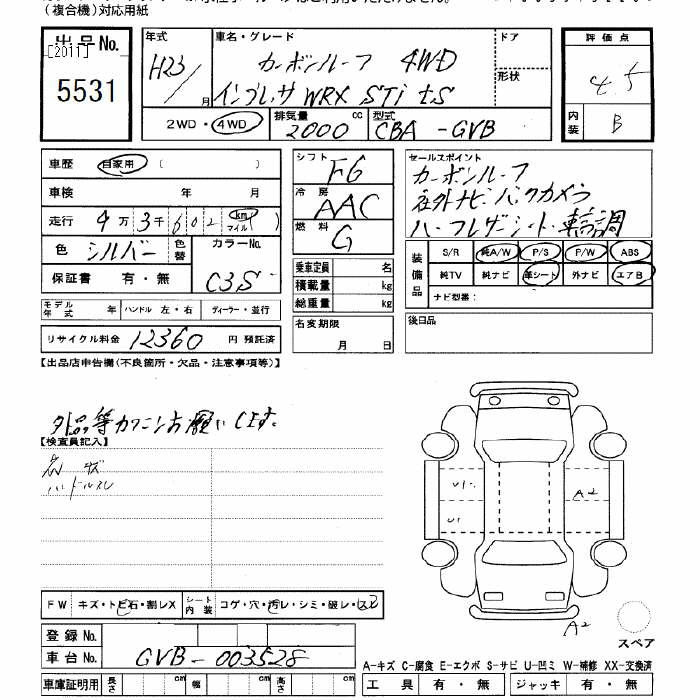 (複合機)対応用紙
出品No.
[2011]
5531
年式
H23/
月
車名・グレード
カーボンルーフ 4WD
インプレッサ WRX STi tS
ドア
形状
2WD・4WD
排気量
2000
cc
型式
CBA-GVB
評価点
4.5
内装
B
車歴
自家用
( )
車検 年 月
走行
4万3千602
km
マイル
( )
色
シルバー
色替
カラーNo.
C3S
保証書 有・無
モデル年式 年
ハンドル 左・右
ディーラー・並行
リサイクル料金 12360 円 預託済
シフト
F6
冷房
AAC
燃料
G
乗車定員 名
積載量 kg
総重量 kg
名変期限
月 日
セールスポイント
カーボンルーフ
社外ナビ バックカメラ
ハーフレザーシート・車高調
装備品
S/R
純A/W
P/S
P/W
ABS
純TV
純ナビ
革シート
外ナビ
エアB
ナビ型番:
後日品
【出品店申告欄(不良箇所・欠品・注意事項等)】
外品等カクニンお願いします。
【検査員記入】
ハンドルスレ
U1
U1
A2
A2
FW キズ・トビ石・割レX
シート内装 コゲ・穴・汚レ・シミ・破レ・スレ
登録No.
車台No.
GVB-003528
車庫証明用
長さ cm
幅 cm
高さ cm
スペア
A-キズ C-腐食 E-エクボ S-サビ U-凹ミ W-補修 XX-交換済
工具 有・無
ジャッキ 有・無